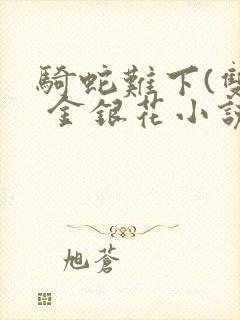 騎蛇難下(雙
金銀花小說
旭蒼